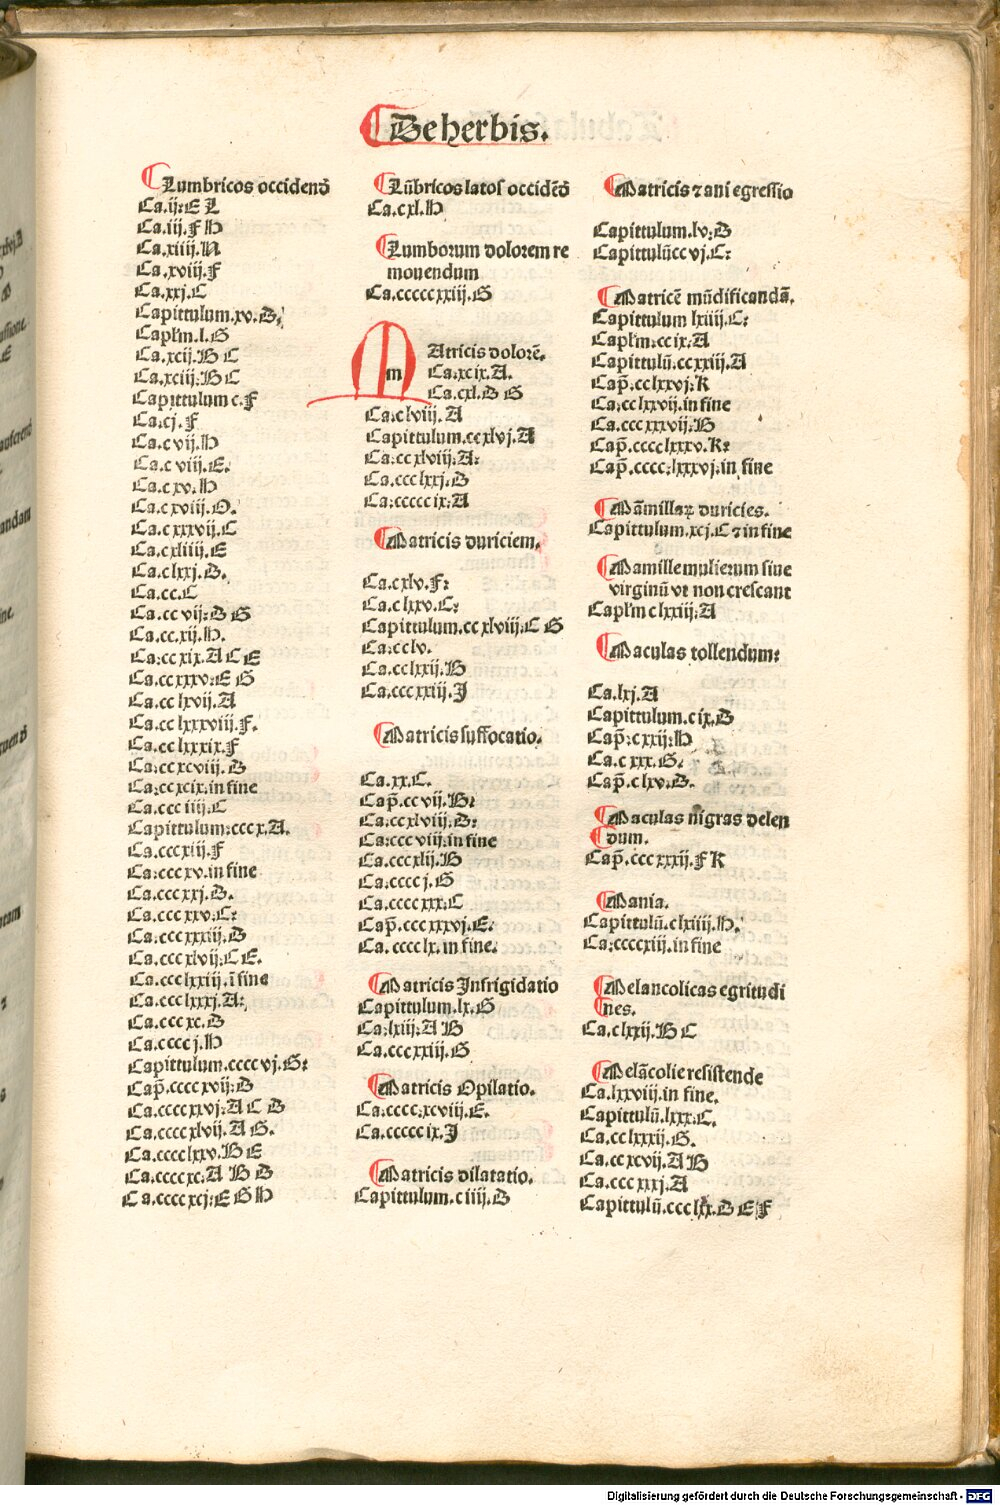 De herbis.
Lumbricos occidendō
Ca.ij:E L
Ca.iij.F H
Ca.xiiij.N
Ca.xviij.F
Ca.xxj.C
Capittulum.xv.D.
Caplm̄.l.G
Ca.xcij.B C
Ca.xciij:B C
Capittulum c.F
Ca.cj.F
Ca.c vij.H
Ca.c viij.E.
Ca.c xv.H
Ca.c xviij.O.
Ca.c xxxvij.C
Ca.cxliiij.E
Ca.c lxxj.D.
Ca.cc.C
Ca.cc vij:D G
Ca.cc.xij.H.
Ca:cc xix.A C E
Ca.cc xxxv:E G
Ca.cc lxvij.A
Ca.cc lxxxviij.F.
Ca.cc lxxxix.F
Ca:cc xcviij.D
Ca:cc xcix.in fine
Ca.ccc iiij.C
Capittulum:ccc x.A.
Ca.cccxiij.F
Ca:ccc xv.in fine
Ca.ccc xxj.D.
Ca.ccc xxv.C:
Ca:ccc xxxiij.D
Ca.ccc xlvij:C E.
Ca.ccc lxxiij.ī fine
Ca.ccc lxxxj.A:
Ca.ccc xc.D
Ca.cccc j.H
Capittulum.cccc vj.G:
Cap̄.cccc xvij:D
Ca.cccc xxvj:A C D
Ca.cccc xlvij.A G.
Ca.cccc lxxv.B E
Ca.cccc xc:A B D
Ca.cccc xcj:E G H
Lūbricos latos occidēdō
Ca.cxl.H
Lumborum dolorem re
mouendum
Ca.ccccc xxiij.G
m
Atricis dolorē.
Ca:xcix.A.
Ca.cxl.D G
Ca:c lviij.A
Capittulum.cc xlvj.A
Ca:cc xlviij:A:
Ca.ccc lxxj.D
Ca:ccccc ix:A
Matricis duriciem.
Ca.cxlv.F:
Ca.c lxxv.C:
Capittulum.cc xlviij:C G
Ca:cc lv.
Ca.cc lxxij.B
Ca.ccc xxiij.J
Matricis suffocatio.
Ca.xx.C.
Cap̄.cc vij.B:
Ca:cc xlviij.D:
Ca:ccc viij:in fine
Ca.ccc xlij.B
Ca:cccc j.G
Ca.cccc xxx.C
Cap̄.ccc xxxvj.E.
Ca.cccc lx.in fine.
Matricis Infrigidatio
Capittulum.lx.G
Ca:lxiij:A B
Ca.ccc xxiij.G
Matricis Opilatio.
Ca:cccc.xcviij.E.
Ca.ccccc ix.J
Matricis dilatatio.
Capittulum.c iiij.D
Matricis ⁊ ani egressio
Capittulum.lv:D
Capittulū cc vj.C:
Matricē mūdificandā.
Capittulum lxiiij.C:
Caplm̄:cc ix:A
Capittulū.cc xxiij.A
Cap̄.cc lxxvj:K
Ca:cc lxxvij.in fine
Ca.ccc xxxvij:B
Cap̄.cccc lxxxv.K:
Cap̄.cccc:lxxxvj:in fine
Māmillaꝝ duricies.
Capittulum.xcj.C ⁊ in fine
Mamille mulierum siue
virginū vt non crescant
Caplm̄ c lxxiij:A
Maculas tollendum:
Ca.lxj.A
Capittulum.c ix.D
Cap̄:c xxij:H
Ca.c xxx.G.
Cap̄.c lxv.D.
Maculas nigras delen
dum.
Cap̄.ccc xxxij.F K
Mania.
Capittulū.c lxiiij.H.
Ca:ccccxiij.in fine
Melancolicas egritudi
nes.
Ca.c lxxij.B C
Melācolie resistende
Ca.lxxviij.in fine.
Capittulū.lxxx:C.
Ca.cc lxxxij.G.
Ca.cc xcvij.A B
Ca.ccc xxxj.A
Capittulū.ccc lxx.D E F
Digitalisierung gefördert durch die Deutsche Forschungsgemeinschaft - DFG